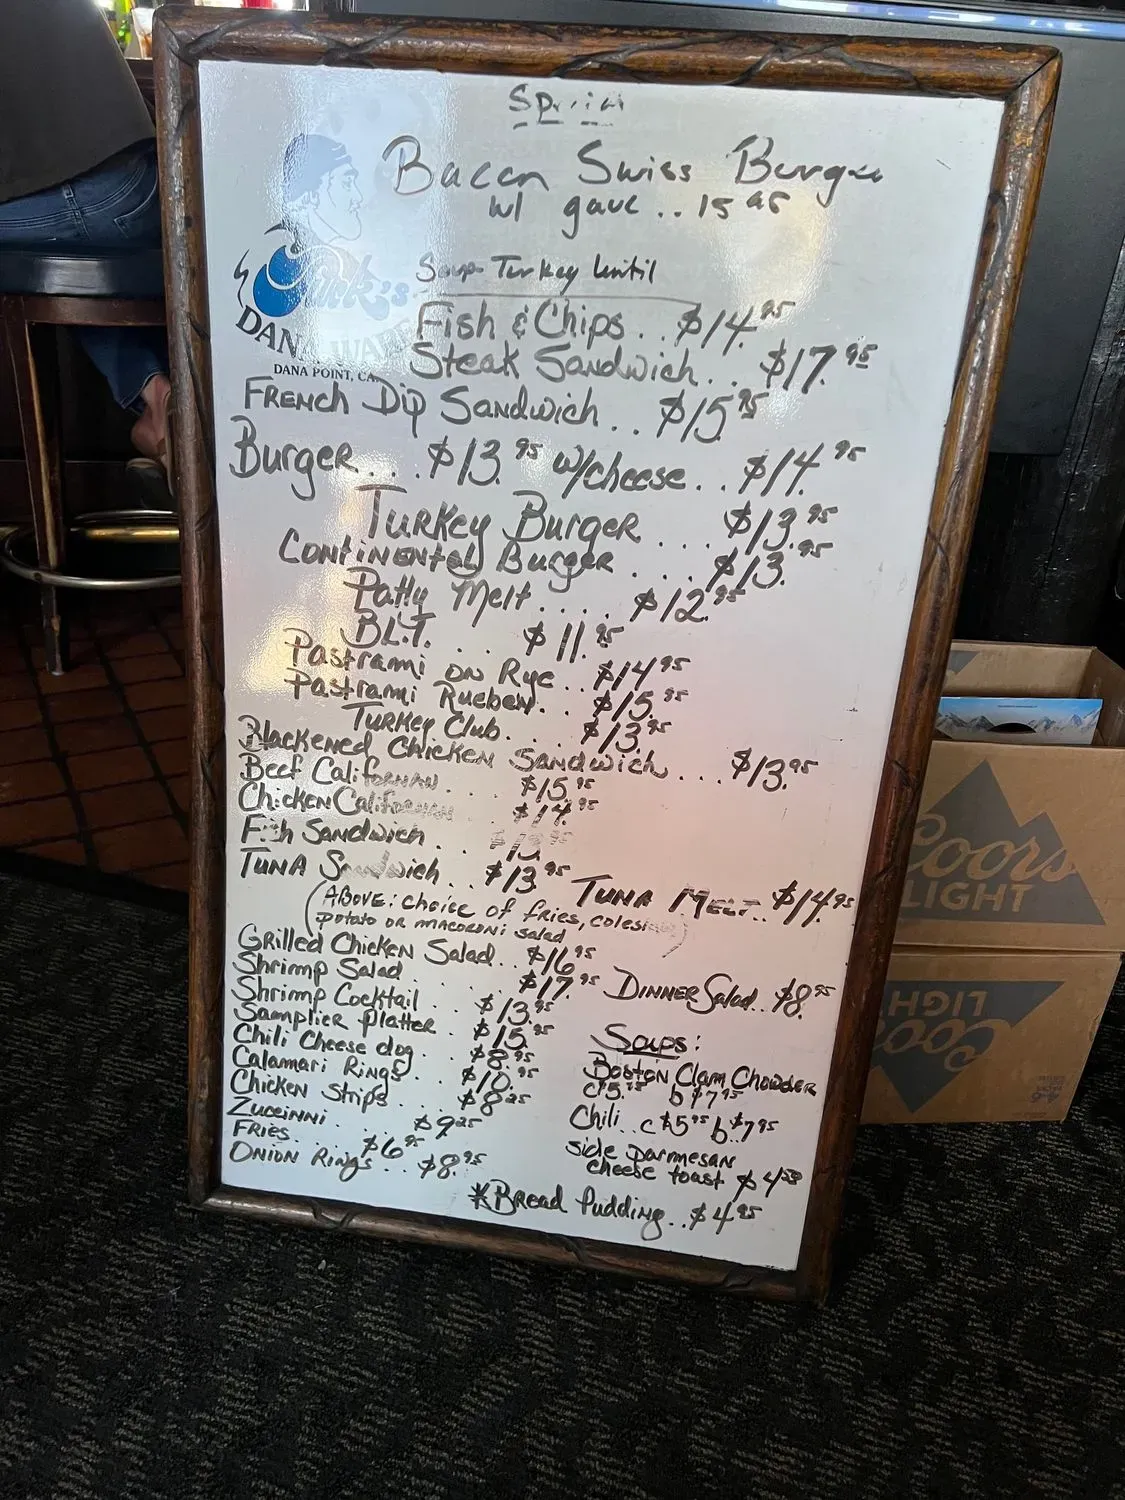 Special
Bacon Swiss Burger
w/ gauc .. 15 95
Soup- Turkey Lentil
Turk's
DANA
DANA POINT, CA
Fish & Chips.. $14.95
Steak Sandwich... $17.95
FRENCH Dip Sandwich... $15.95
Burger... $13.95 w/cheese.. $14.95
Turkey Burger .... $13.95
Continental Burger .... $13.95
Patty Melt..... $12.95
BL.T. . $11.95
Pastrami on Rye.. $14.95
Pastrami Rueben.. $15.95
Turkey Club... $13.95
Blackened Chicken Sandwich... $13.95
Beef Californian .... $15.95
Chicken Californian $14.95
Fish Sandwich ..
TUNA Sandwich.. $13.95
TUNA MELT.. $14.95
(ABOVE: choice of fries, coleslaw
potato or macaroni salad)
Grilled Chicken Salad.. $16.95
Shrimp Salad ... $17.95
DINNER Salad.. $8.95
Shrimp Cocktail . $13.95
Samplier Platter . $15.95
Chili Cheese dog . $8.95
Calamari Rings . $10.95
Chicken Strips . $8.95
Zuccinni .... $9.25
FRIES.... $6.95
ONION Rings.. $8.95
Soups:
Boston Clam Chowder
b $7.95
Chili.. c$5.95 b.$7.95
side parmesan
cheese toast $4.50
*Bread Pudding.. $4.95
Coors
LIGHT
Coors
LIGHT